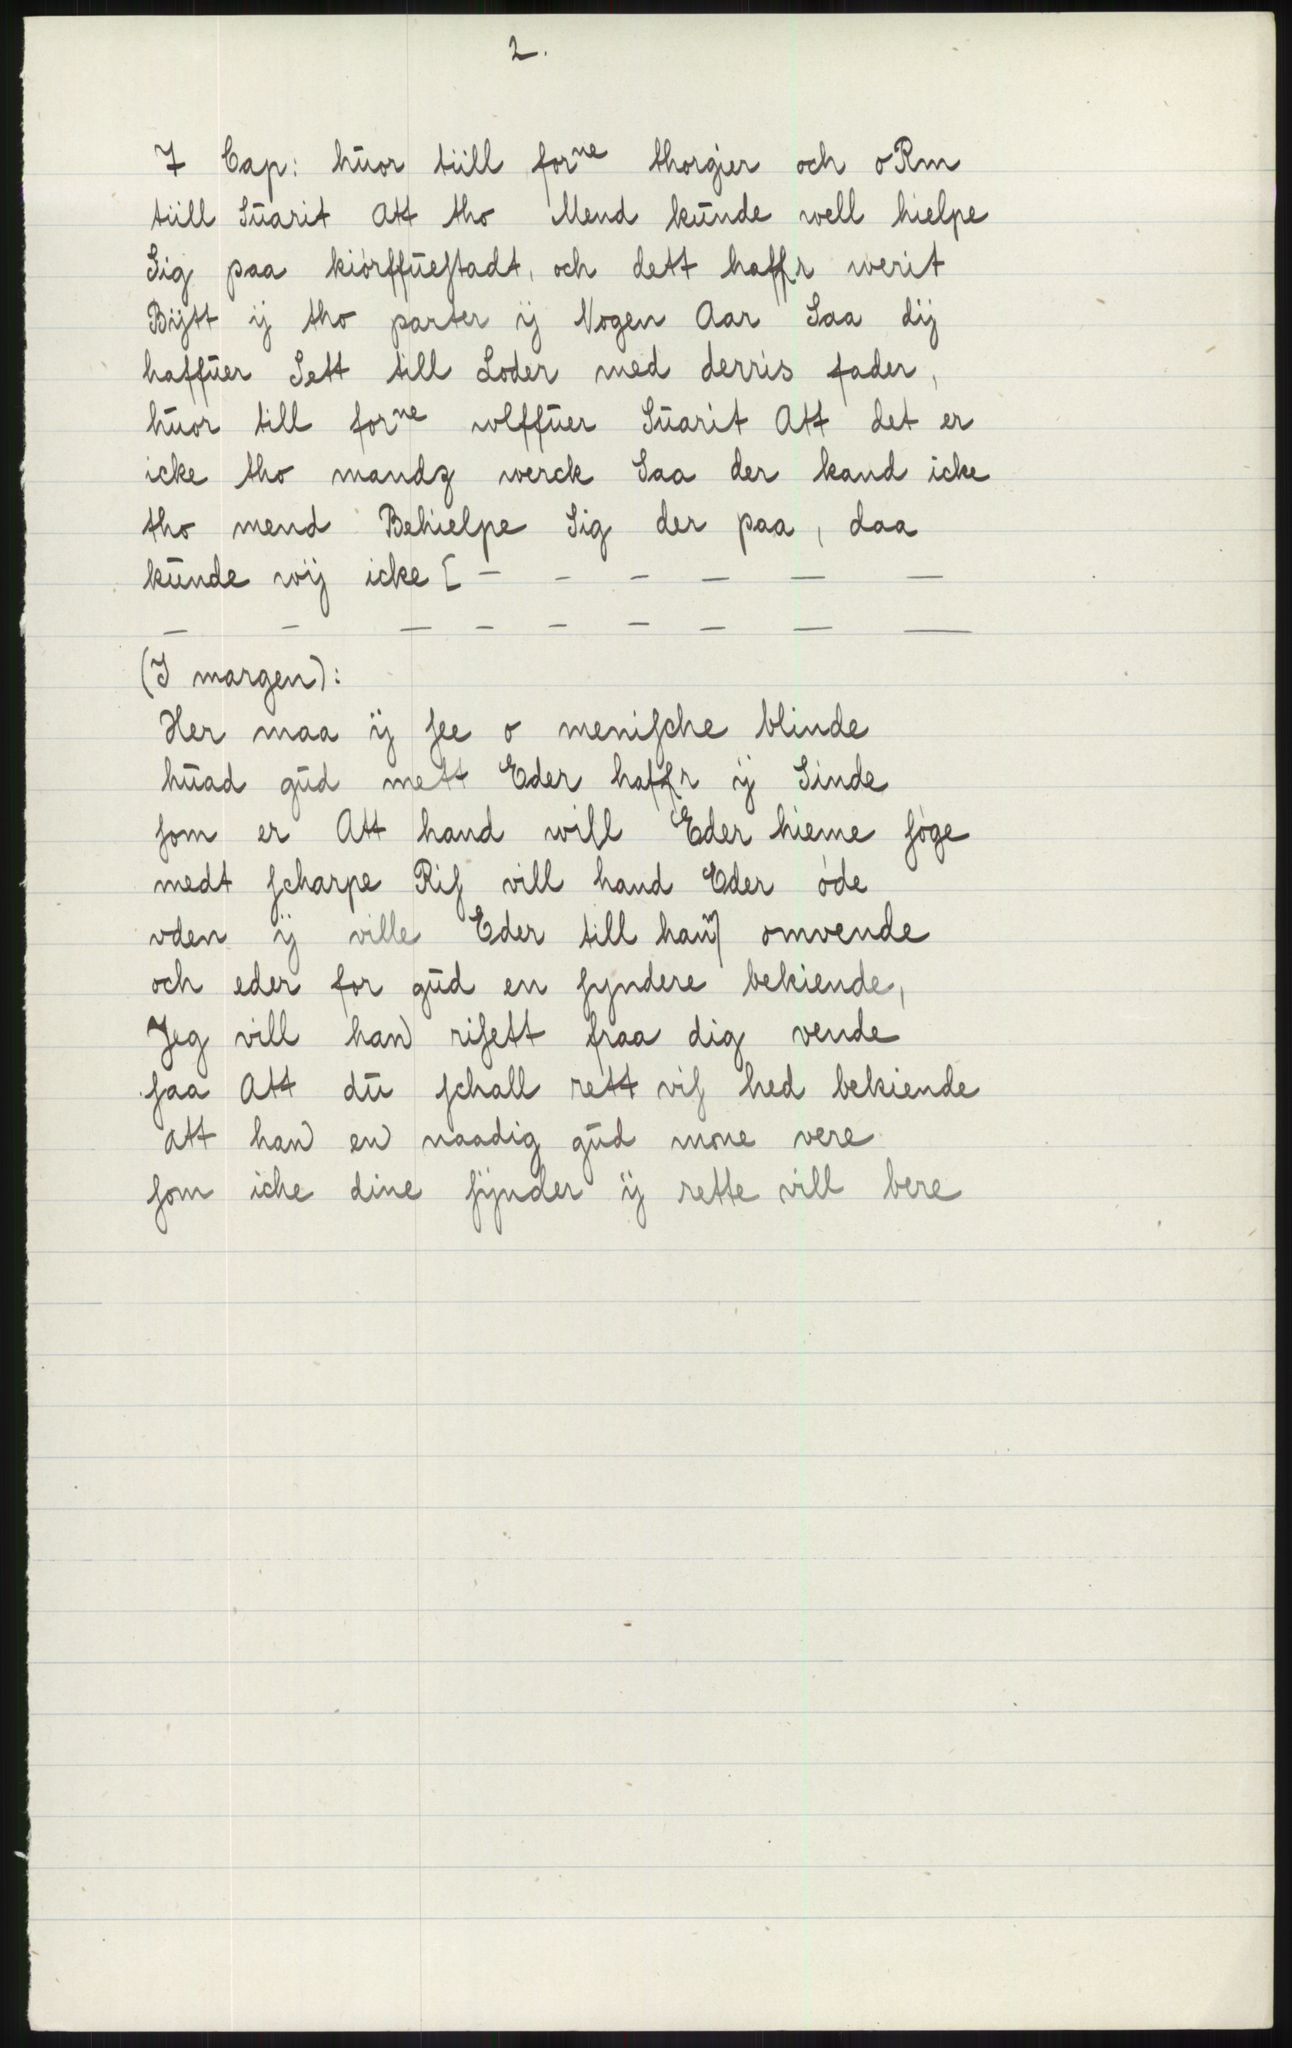 2.
7 Cap: huor tiill for^ne thorgier och oRm
tiill Suarit Att tho Mend kunde well hielpe
Sig paa kiórffueſtadt, och dett haffr werit
Bÿtt ÿ tho parter ÿ Nogen Aar Saa dÿ
haffuer Sett till Loder med derris fader,
huor till for^ne wlffuer Suarit Att det er
icke tho mandz werck Saa der kand icke
tho mend Behielpe Sig der paa, daa
kunde wÿ icke [- - - - - -
- - - - - - - - -
(I margen):
Her maa ÿ ſee o meniſche blinde
huad gud mett Eder haffr ÿ Sinde
ſom er Att hand will Eder hieme ſóge
medt ſcharpe Riſ vill hand Eder óde
vden ÿ ville Eder till hanſ omvende
och eder for gud en ſyndere bekiende,
Jeg vill han riſett fraa dig vende
ſaa Att du ſchall rett viſ hed bekiende
att han en naadig gud mone vere
ſom iche dine ſÿnder ÿ rette vill bere